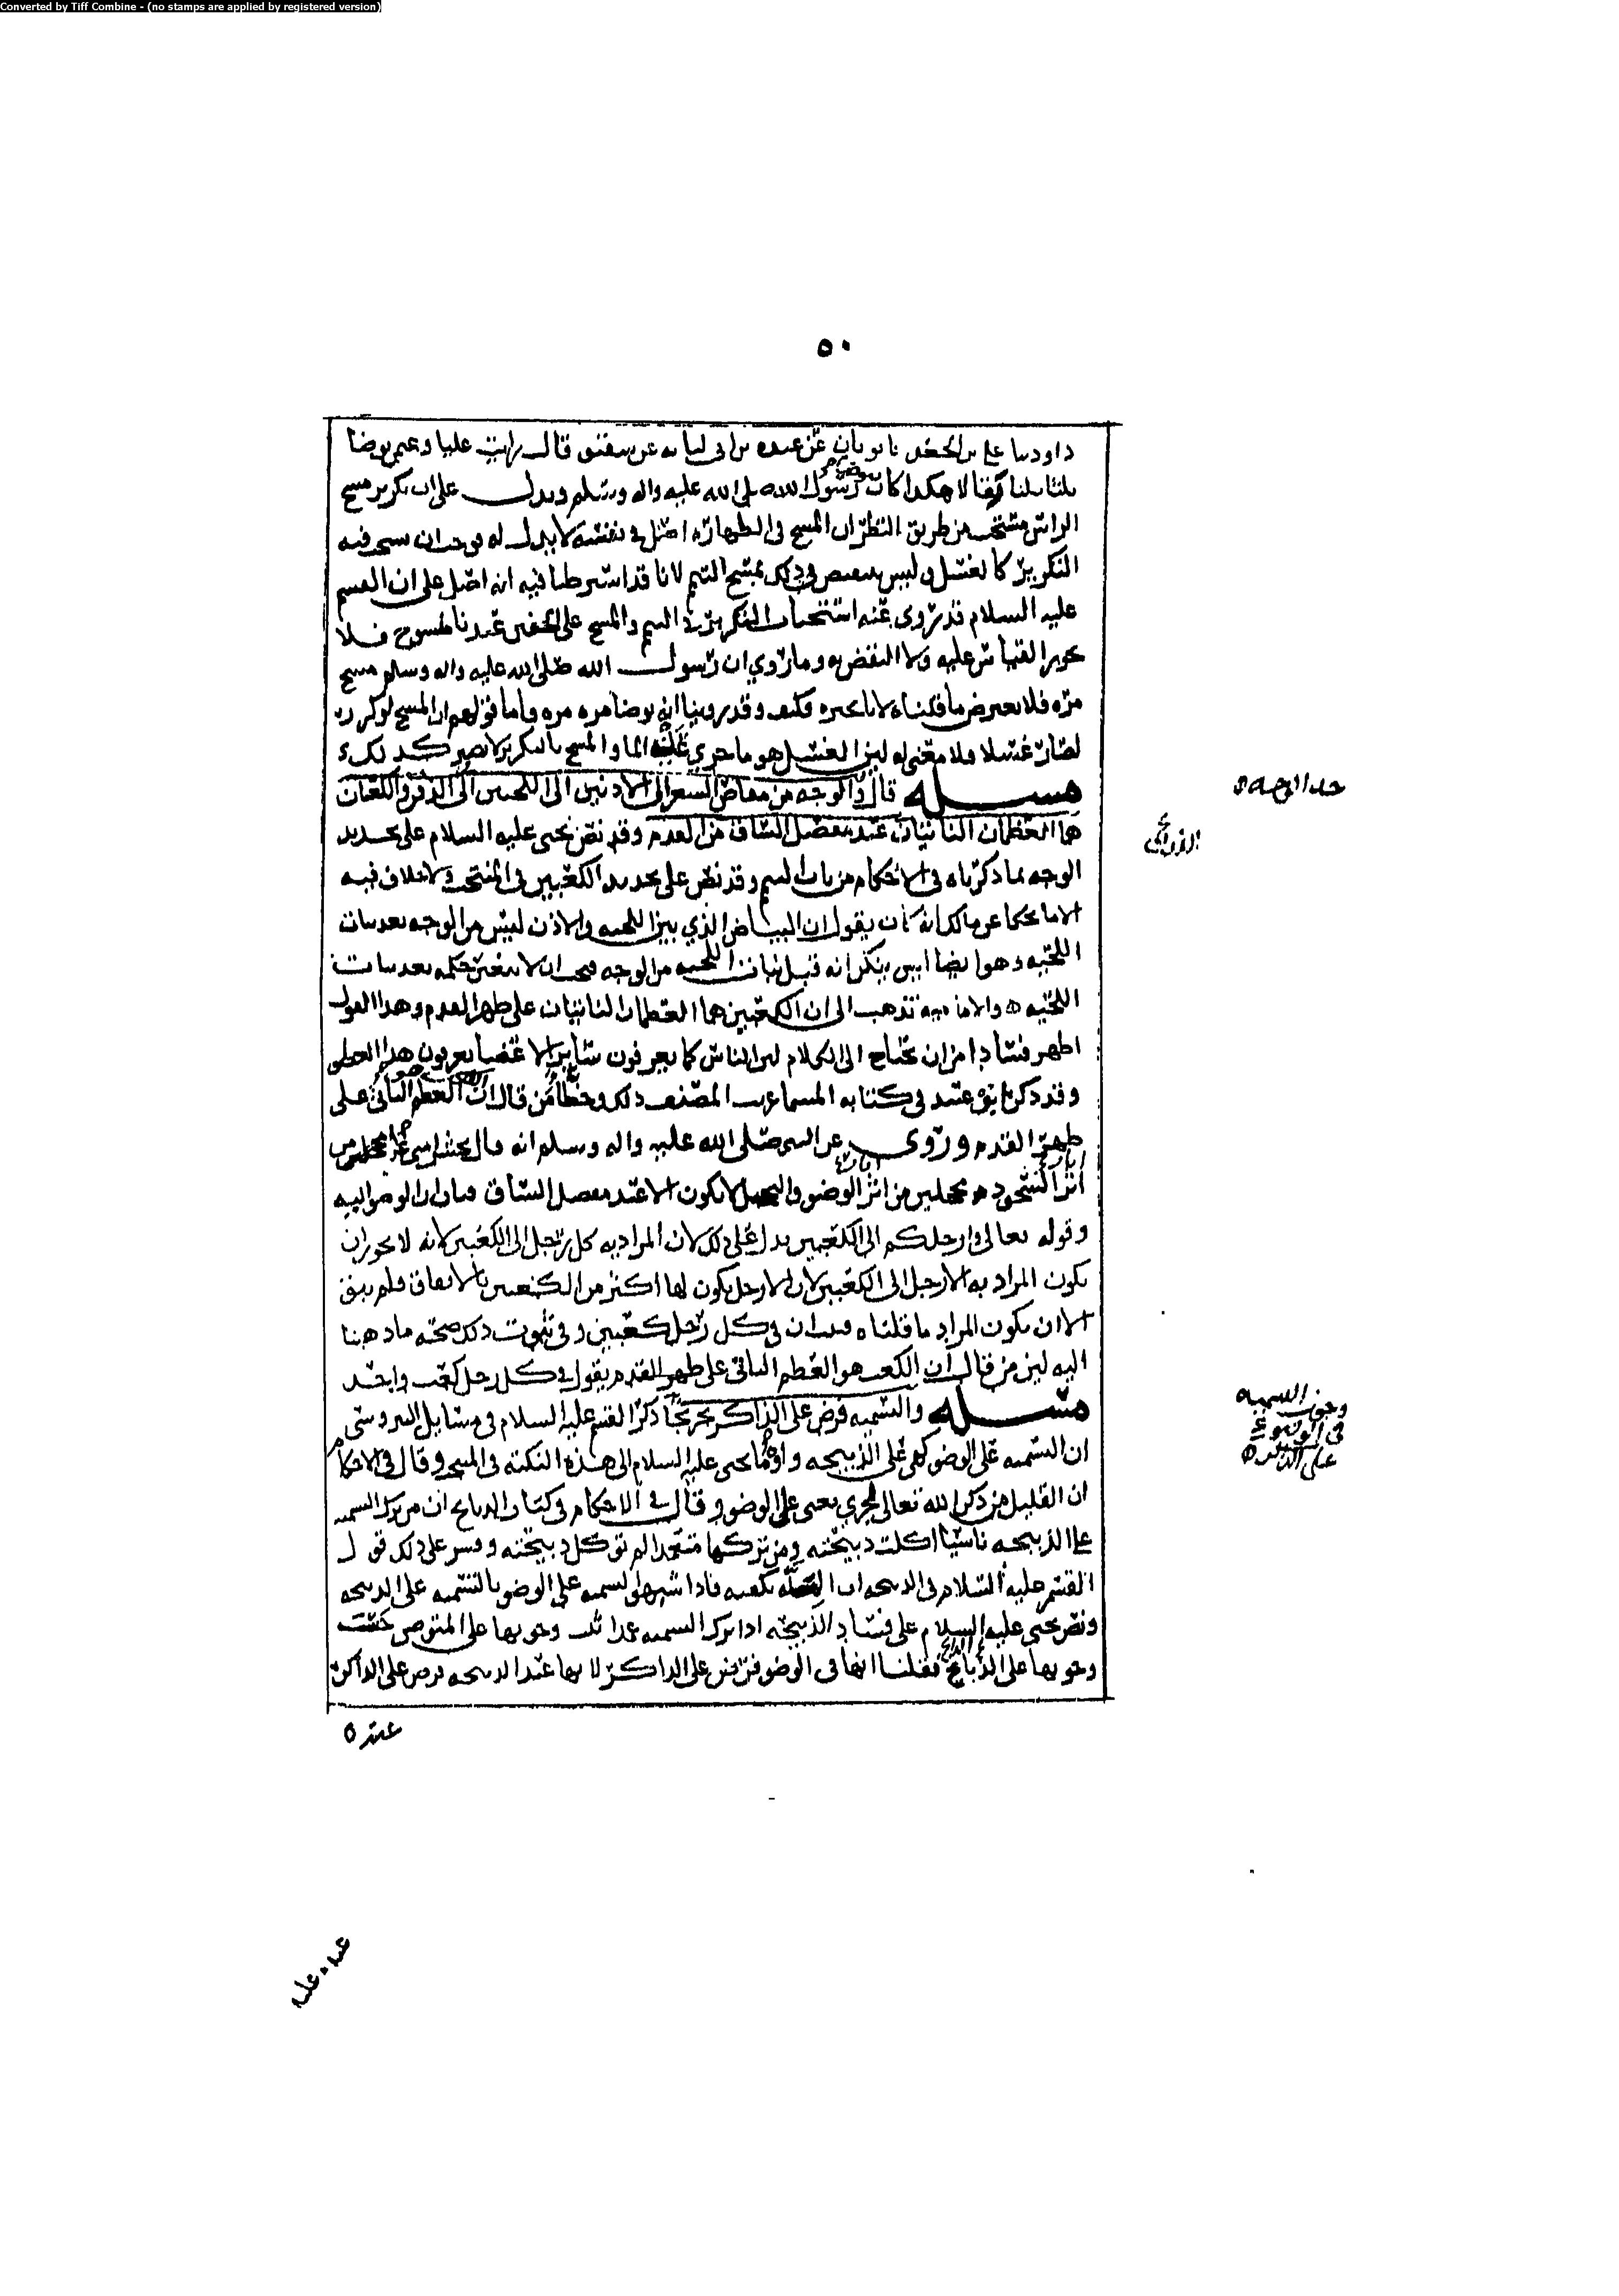 Converted by Tiff Combine - (no stamps are applied by registered version)
٥٠
داود عن علي بن الجعد عن عبده بن ابي لبابه عن شقيق قال رايت عليا وعثمن يوضا
ثلثا ثلثا وقالا هكذا كان وضوء رسول الله صلى الله عليه واله وسلم ويدل على ان تكرير مسح
الراس مستحب من طريق النظر ان المسح في الطهاره اصل في نفسه لا بدل له فوجب ان يستحب فيه
التكرير كالغسل وليس ينتقض ذلك بمسح التيمم لانا قد اشترطنا فيه انه اصل على ان القسم
عليه السلام قد روي عنه استحباب التكرير في التيمم والمسح على الخفين عندنا منسوخ فلا
يجوز القياس عليه ولا النقض به وما روي ان رسول الله صلى الله عليه واله وسلم مسح
مره فلا يعترض ما قلناه لانا نجيزه وكيف وقد روينا انه توضا مره مره واما قولهم ان المسح لو كرر
لصار غسلا فلا معنى له لان الغسل هو ما جرى عليه الما والمسح بالتكرير لا يصير كذلك
مسله قال والوجه من مقاص الشعر الى الاذنين الى اللحيين الى الذقن والكعبان
هما العظمان الناتيان عند مفصل الساق من القدم وقد نص يحيى عليه السلام على تحديد
الوجه بما ذكرناه في الاحكام من باب التيمم وقد نص على تحديد الكعبين في المنتخب ولا خلاف فيه
الا ما يحكا عن مالك انه كان يقول ان البياض الذي بين اللحيه والاذن ليس من الوجه بعد نبات
اللحيه وهو ايضا ليس ينكر انه قبل نبات اللحيه من الوجه فيجب ان لا يتغير حكمه بعد نبات
اللحيه والاماميه تذهب الى ان الكعبين هما العظمان الناتيان على ظهر القدم وهذا القول
اظهر فسادا من ان يحتاج الى الكلام لان الناس كما يعرفون ساير الاعضا يعرفون هذا العضو
وقد ذكر ابو عبيد في كتابه المسما غريب المصنف ذلك وخطا من قال ان الكعب هو العظم الناتي على
ظهر القدم وروي عن النبي صلى الله عليه واله وسلم انه قال يحشر امتي غرا محجلين من
اثر السجود محجلين من اثر الوضو والتحجيل لا يكون الا عند مفصل الساق فبان ان الوضو اليه
وقوله تعالى وارجلكم الى الكعبين يدل على ذلك لان المراد به كل رجل الى الكعبين لانه لا يجوز ان
يكون المراد به الارجل الى الكعبين لان الارجل يكون لها اكثر من الكعبين بالاتفاق فلم يبق
الا ان يكون المراد ما قلناه فبان ان في كل رجل كعبين وفي ثبوت ذلك صحه ما ذهبنا
اليه لان من قال ان الكعب هو العظم الناتي على ظهر القدم يقول في كل رجل كعب واحد
مسله والتسميه فرض على الذاكر تخريجا ذكر القسم عليه السلام في مسايل النيروسي
ان التسميه على الوضو كهي على الذبيحه واوما يحيى عليه السلام الى هذه النكته في المسح وقال في الاحكام
ان القليل من ذكر الله تعالى يجزي يعني على الوضو وقال في الاحكام في كتاب الذبايح ان من ترك التسميه
على الذبيحه ناسيا اكلت ذبيحته ومن تركها متعمدا لم توكل ذبيحته وفسر على ذلك قول
القسم عليه السلام في الذبيحه ان المله تكفيه فاذا شبهوا التسميه على الوضو بالتسميه على الذبيحه
ونص يحيى عليه السلام على فساد الذبيحه اذا ترك التسميه عمدا ثبت وجوبها على المتوضي حسب
وجوبها على الذابح فقلنا انها في الوضو فرض على الذاكر لانها عند الذبيحه فرض على الذاكر
عنده
حد الوجه
وجوب التسميه
في الوضوء
على الذاكر